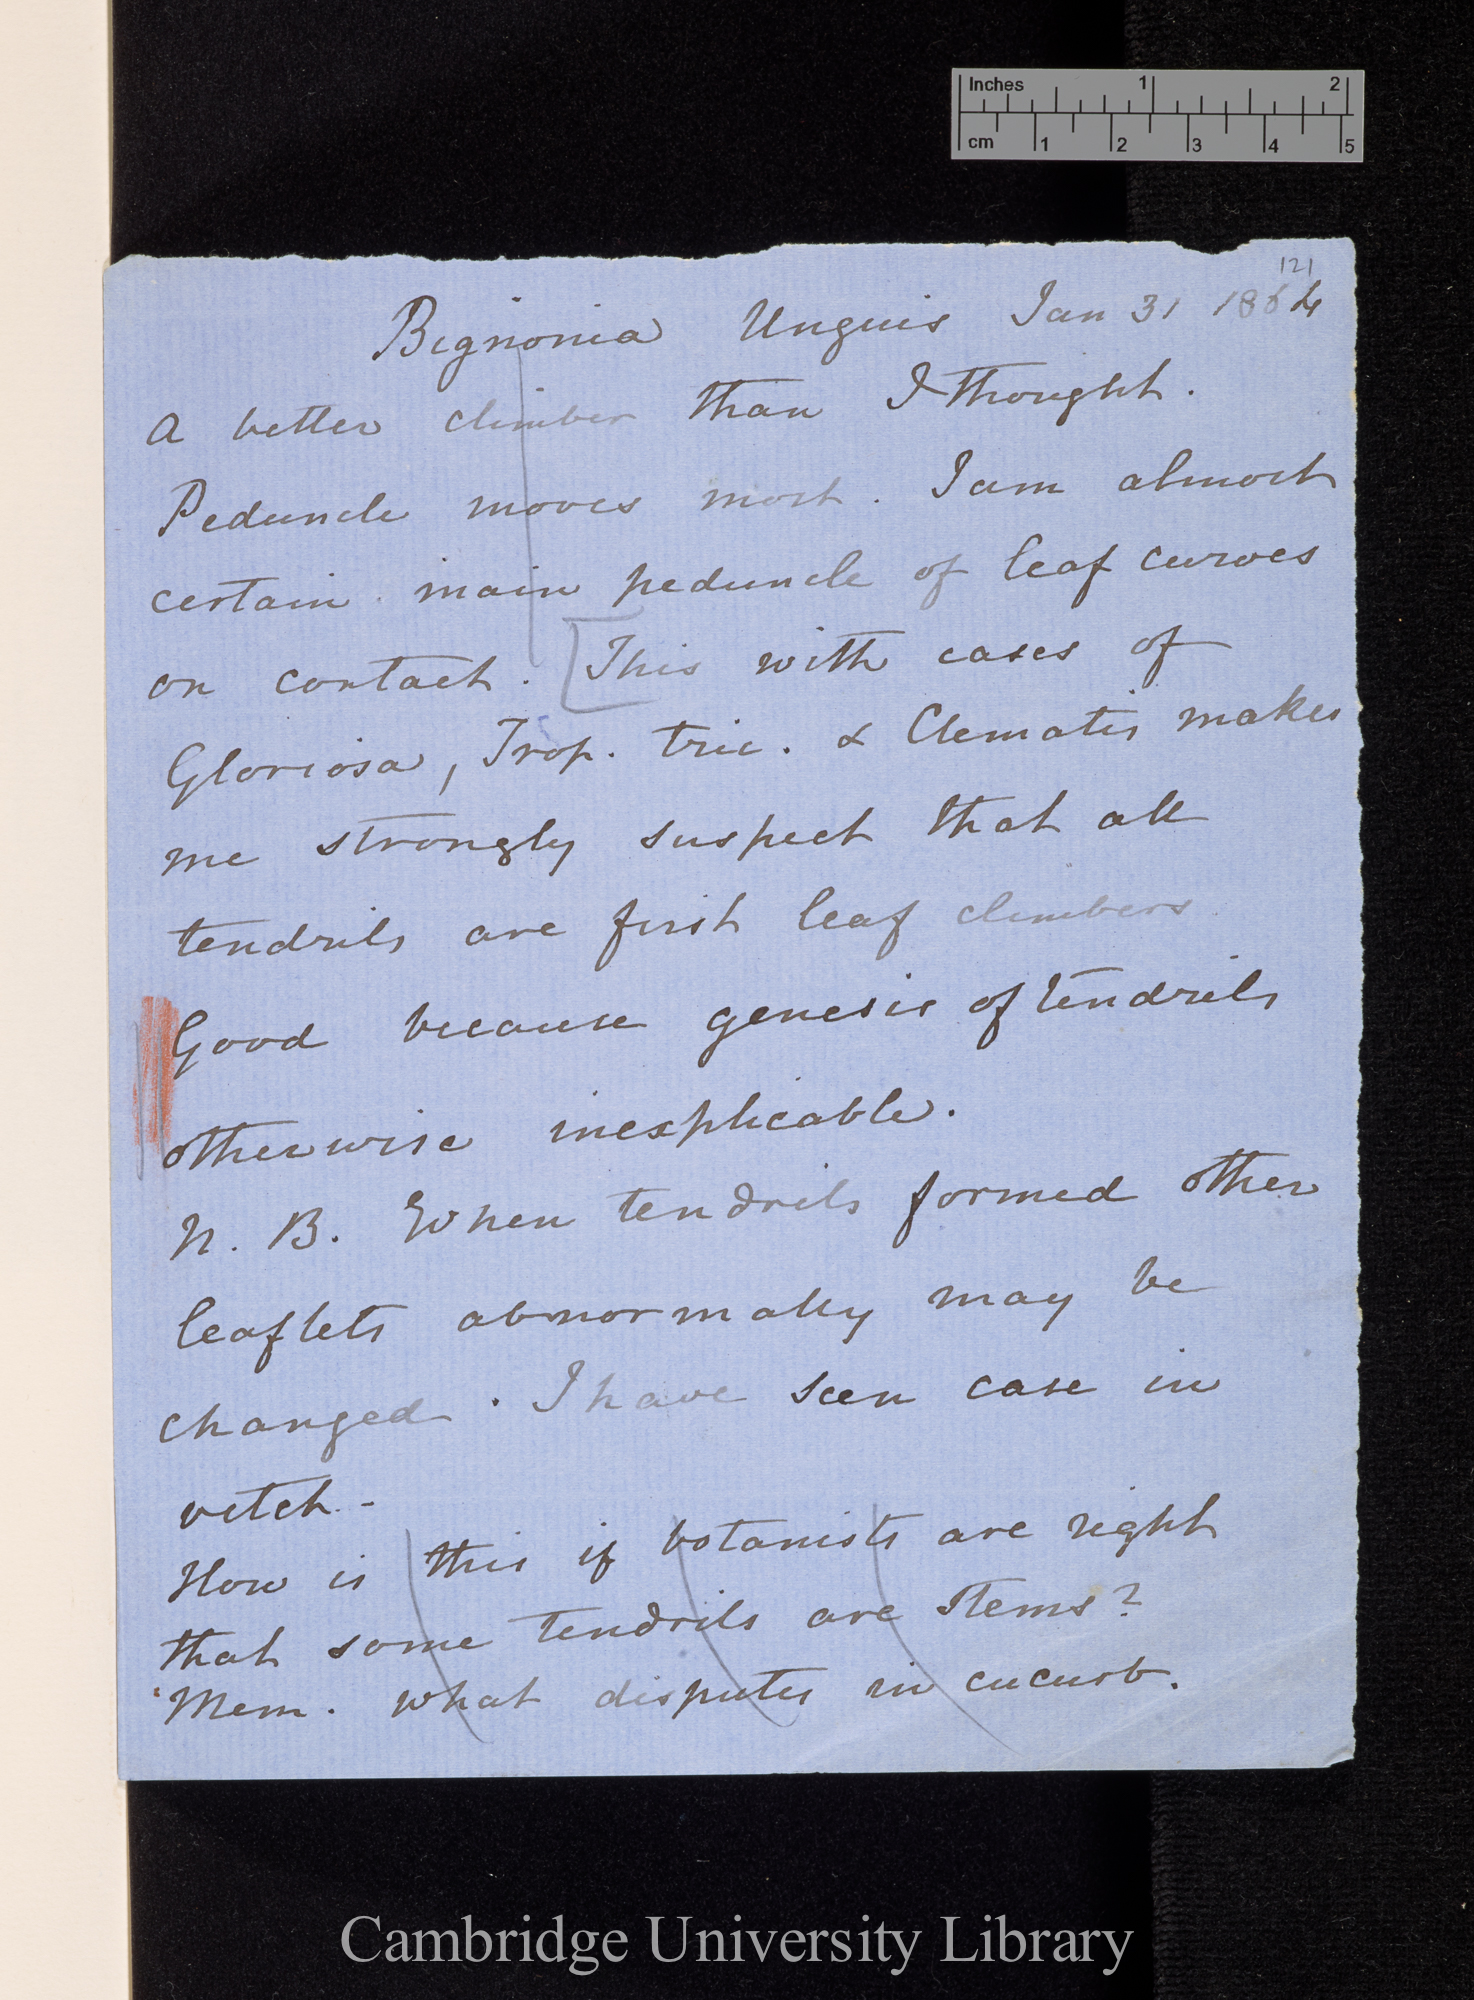 Inches 1 2
cm 1 2 3 4 5
121
Bignonia Unguis Jan 31 1864
A better climber than I thought.
Peduncle moves most. I am almost
certain main peduncle of leaf curves
on contact. [This with cases of
Gloriosa, Trop. tric. & Clematis makes
me strongly suspect that all
tendrils are first leaf climbers
Good because genesis of tendrils
otherwise inexplicable.
N. B. When tendrils formed other
leaflets abnormally may be
changed. I have seen case in
vetch-
How is this if botanists are right
that some tendrils are stems?
Mem. what disputes in cucurb.
Cambridge University Library